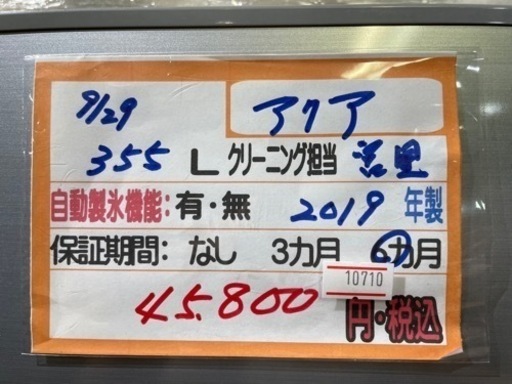 9/29 アクア
355 L クリーニング担当
自動製氷機能：有・無 2019 年製
保証期間：なし 3カ月 6カ月
10710
45.800 円・税込